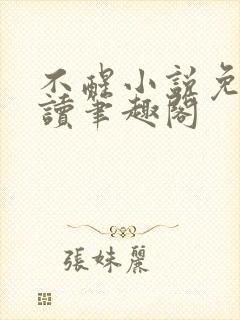 不醒小説免
讀筆趣閣
張妹麗